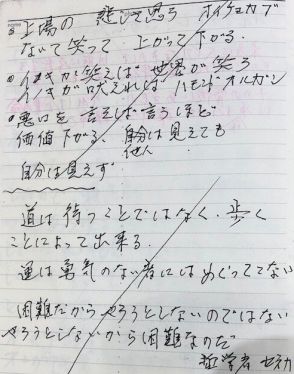 上場の 悲しで思う オイチョカブ
ないて笑って 上がって下がる.
イノキが笑えば 世界が笑う
イノキが吠えれば ハモンドオルガン
悪口を 言えば言うほど
価値下がる、自分は見えても
他人
自分は見えず
道は 待つことではなく、歩く
ことによって出来る.
運は勇気のない者にはめぐってこない
困難だから やろうとしないのではない
やろうとしないから困難なのだ
哲学者 セネカ